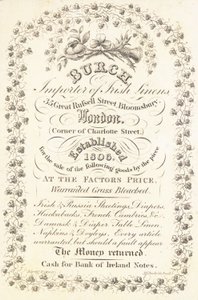 BURCH,
Importer of Irish Linens
35 Great Russell Street, Bloomsbury
London.
(Corner of Charlotte Street,)
Established
1806.
for the sale of the following goods by the piece
AT THE FACTORS PRICE,
Warranted Grass Bleached.
Irish & Russian Sheetings, Diapers,
Huckabacks, French Cambrics, &c.
Damask & Diaper Table Linen,
Napkins & Doyleys. Every article
warranted, but should a fault appear
The Money returned.
Cash for Bank of Ireland Notes.